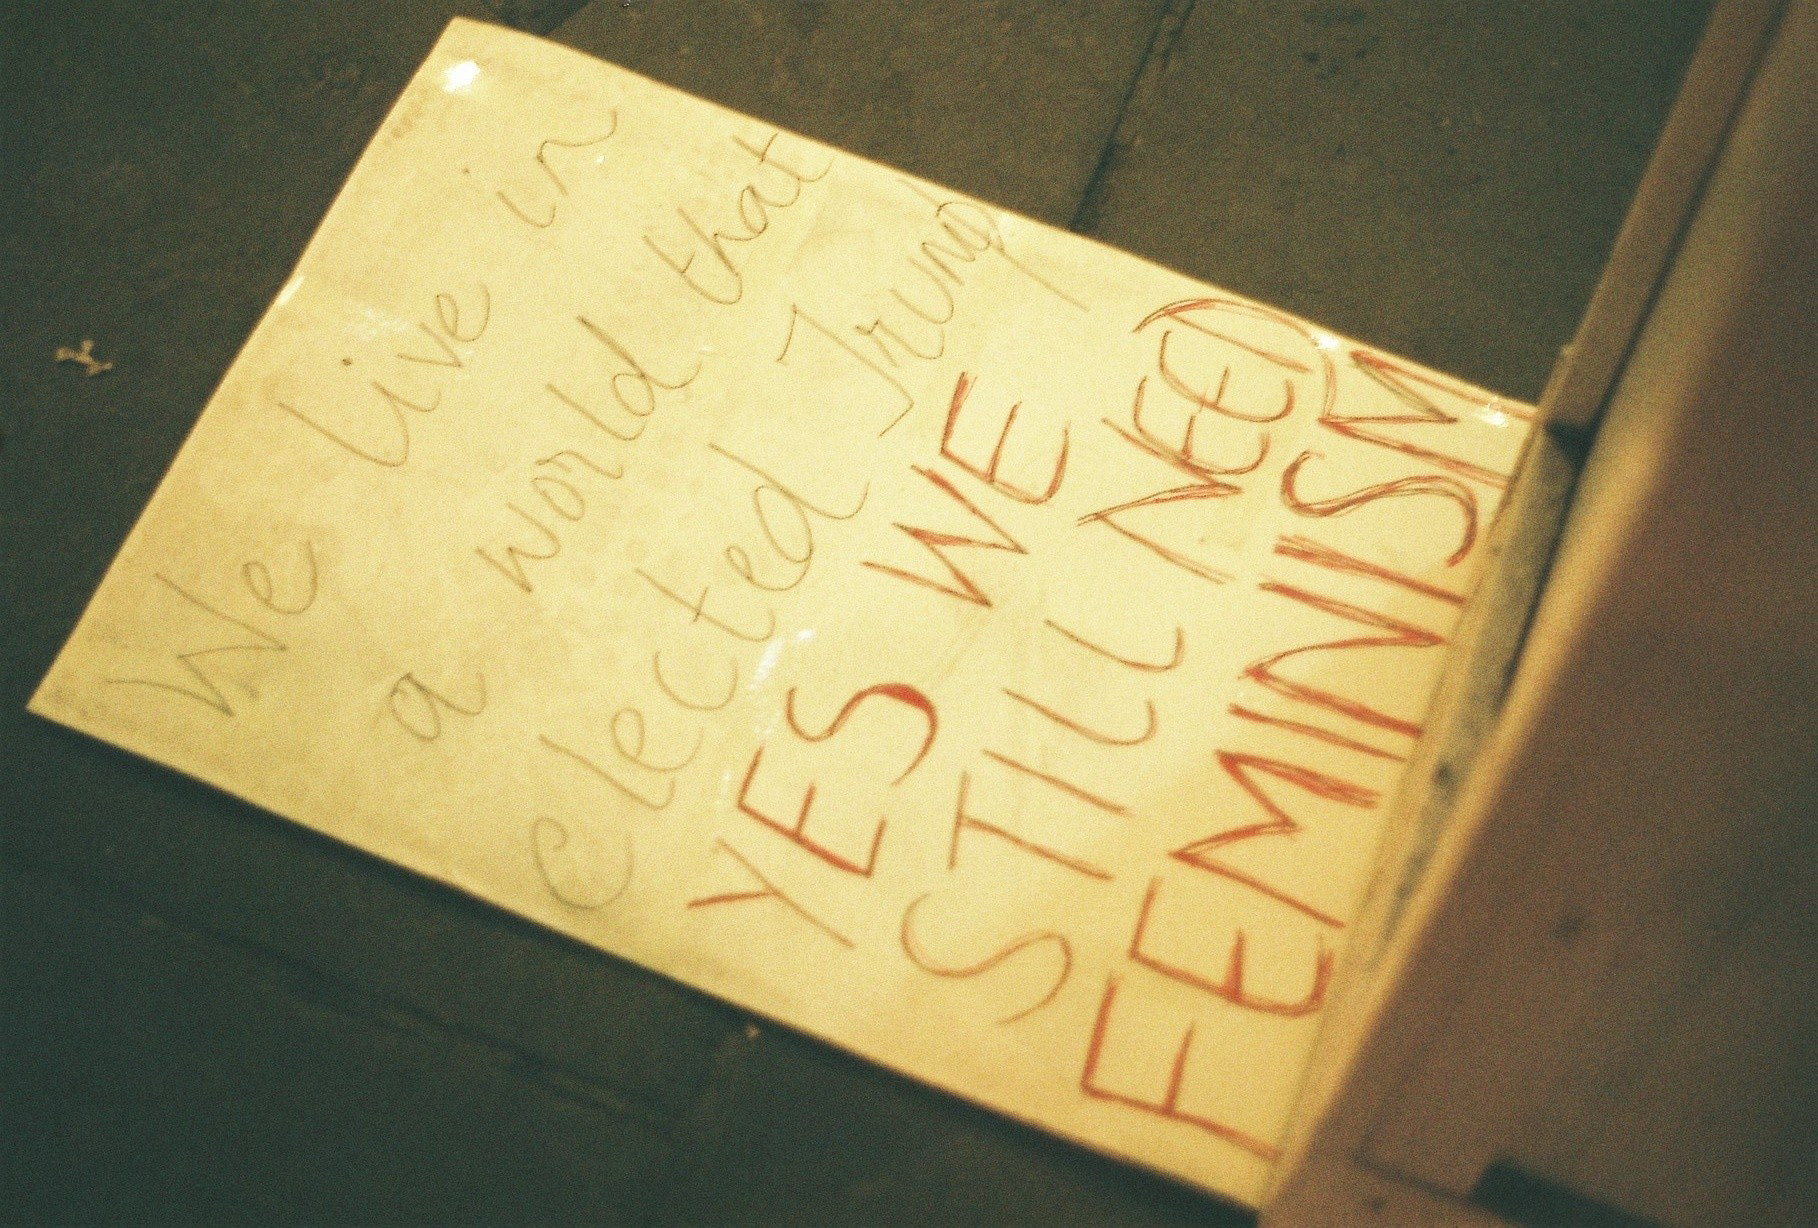 We live in
a world that
elected Trump
YES WE
STILL NEED
FEMINISM